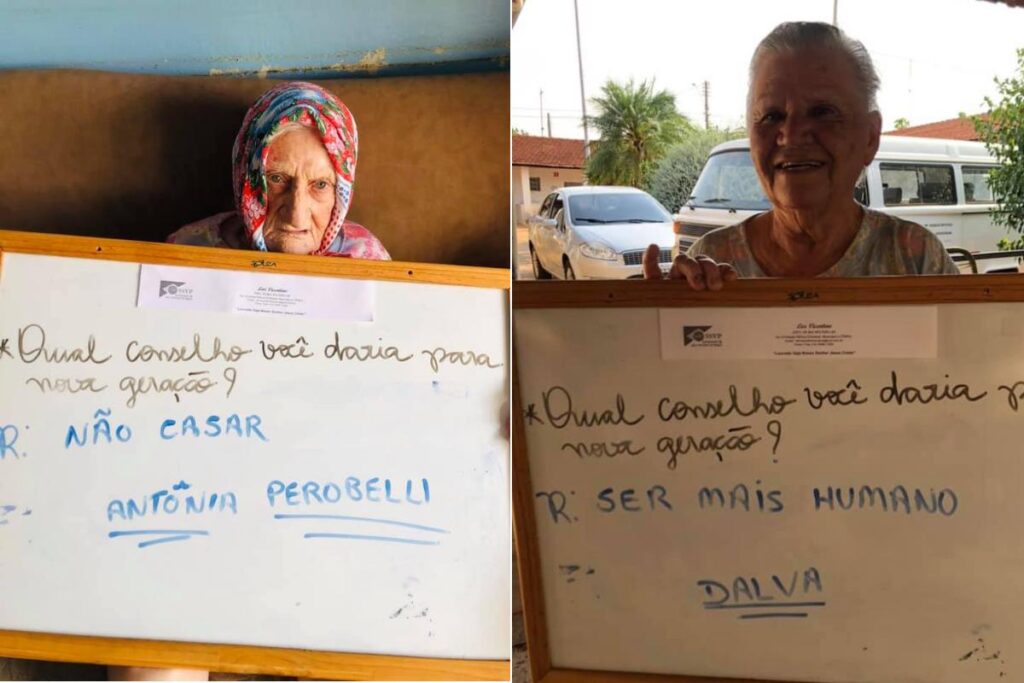 SSVP
Lar Vicentino
*Qual conselho você daria para
nova geração?
R: NÃO CASAR
ANTÔNIA PEROBELLI
SSVP
Lar Vicentino
"Louvado Seja Nosso Senhor Jesus Cristo"
*Qual conselho você daria p
nova geração?
R: SER MAIS HUMANO
DALVA